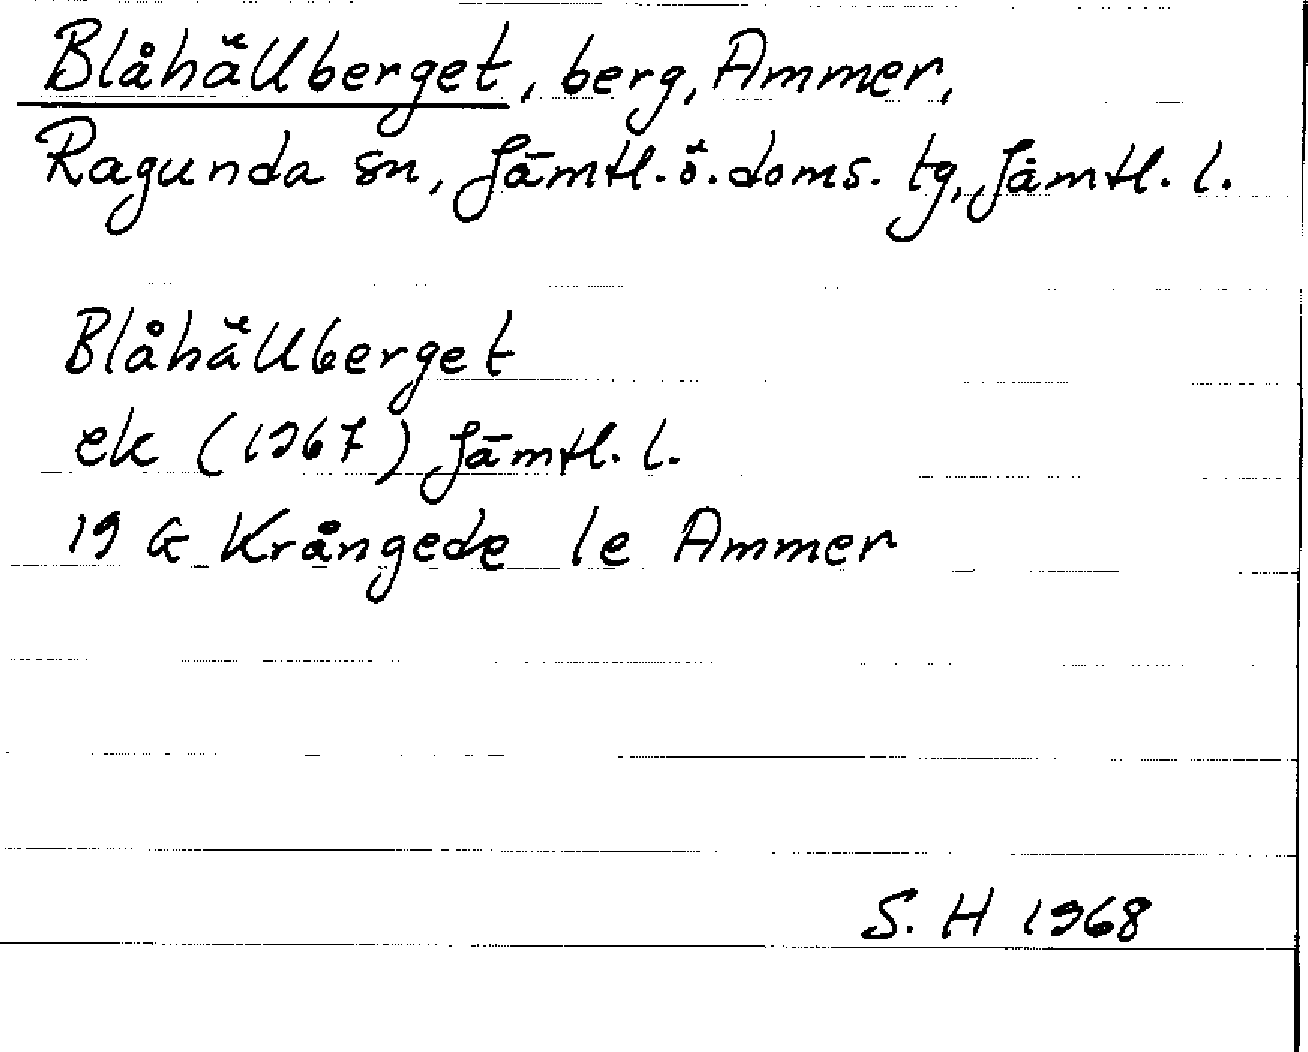 Blåhällberget, berg, Ammer,
Ragunda sn, Jämtl. ö. doms. tg, Jämtl. l.
Blåhällberget
ek (1967) Jämtl. l.
19 G Krångede le Ammer
S. H 1968